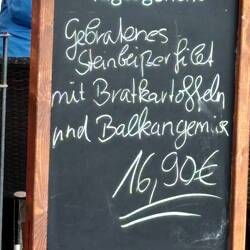 Gebratenes
Steinbeißerfilet
mit Bratkartoffeln
und Balkangemüse
16,90€